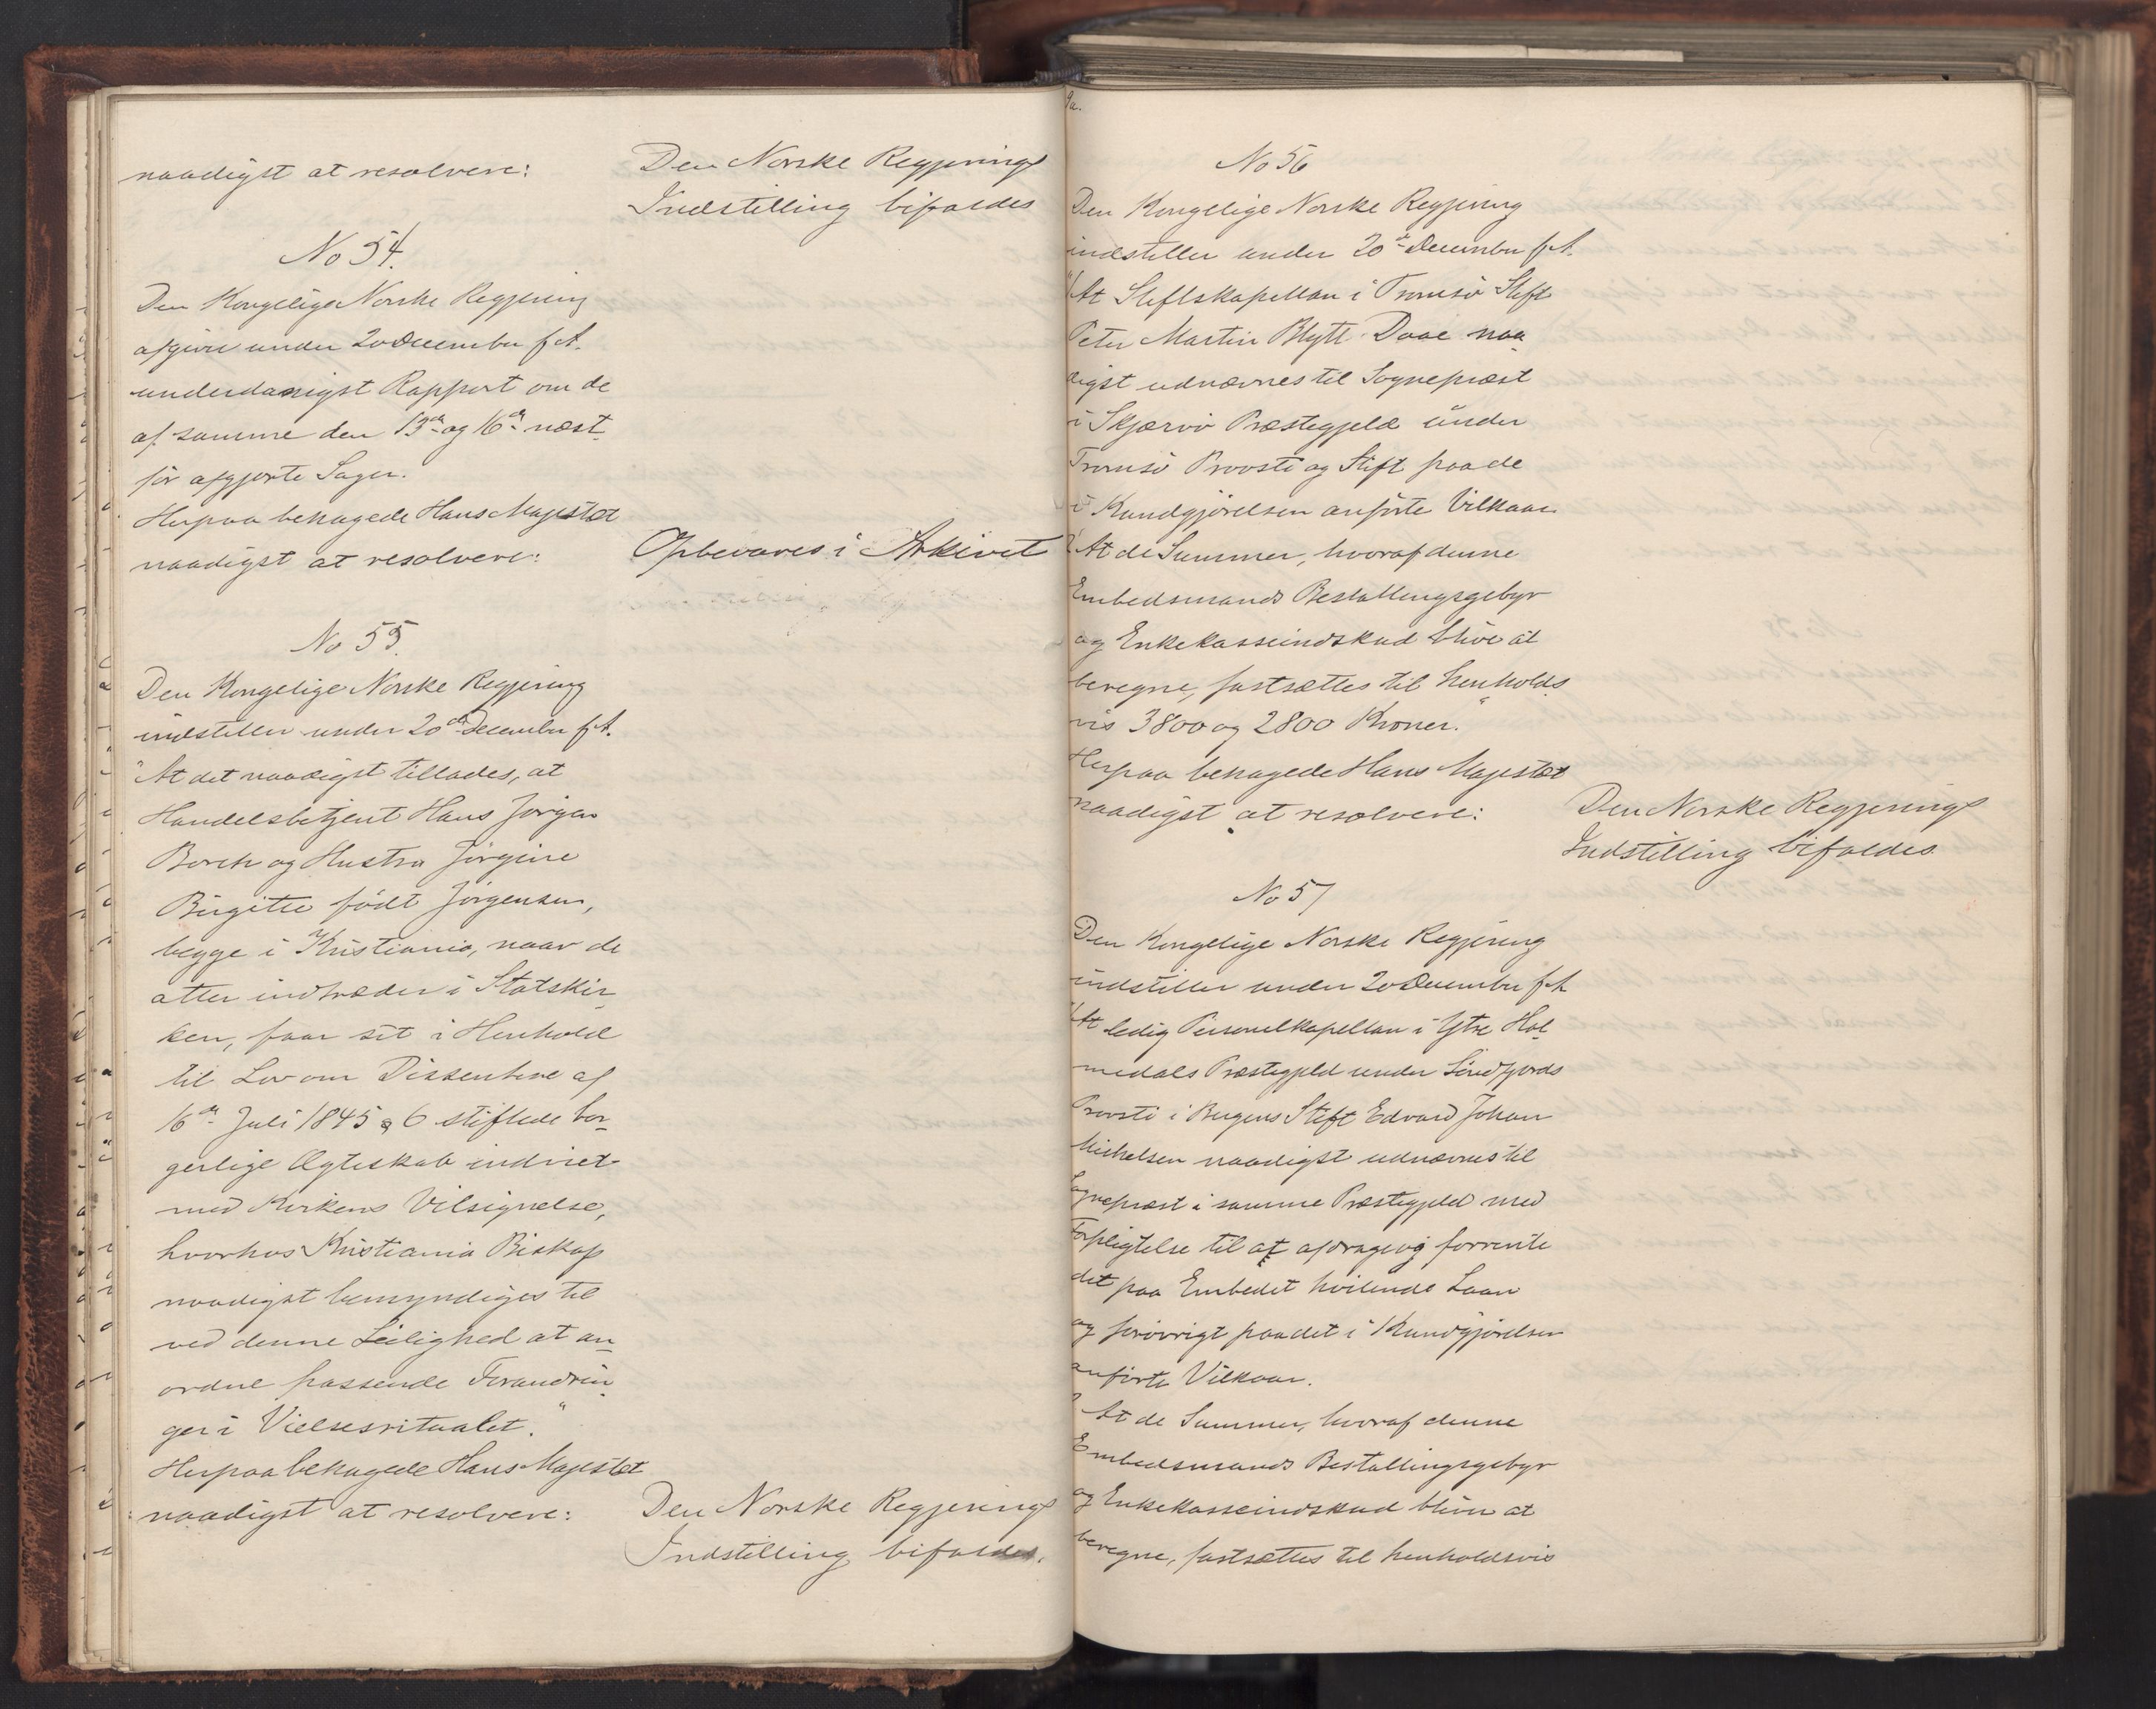 naadigst at resolvere:
Den Norske Regjerings
Indstilling bifaldes
No 54.
Den Kongelige Norske Regjering
afgiver under 20 December f. A.
underdanigst Rapport om de
af samme den 13de og 16de næst
før afgjorte Sager.
Herpaa behagede Hans Majestæt
naadigst at resolvere:
Opbevares i Arkivet
No 55.
Den Kongelige Norske Regjering
indstiller under 20de December f. A.
"At det naadigst tillades, at
Handelsbetjent Hans Jørgen
Borch og Hustru Jørgine
Birgitte født Jørgensen,
begge i Kristiania, naar de
atter indtræder i Statskir-
ken, faar sit i Henhold
til Lov om Dissentere af
16de Juli 1845 § 6 stiftede bor-
gerlige Ægteskab indviet
med Kirkens Velsignelse,
hvorhos Kristiania Biskop
naadigst bemyndiges til
ved denne Leilighed at an-
ordne passende Forandrin-
ger i Vielsesritualet."
Herpaa behagede Hans Majestæt
naadigst at resolvere:
Den Norske Regjerings
Indstilling bifaldes.
No 56
Den Kongelige Norske Regjering
indstiller under 20de December f. A.
"At Stiftskapellan i Tromsø Stift
Peter Martin Blytt Daae naa-
digst udnævnes til Sogneprest
i Skjærvø Præstegjeld under
Tromsø Provsti og Stift paa de
i Kundgjørelsen anførte Vilkaar
2 At de Summer, hvoraf denne
Embedsmands Bestallingsgebyr
og Enkekasseindskud blive at
beregne, fastsættes til henholds-
vis 3800 og 2800 Kroner."
Herpaa behagede Hans Majestæt
naadigst at resolvere:
Den Norske Regjerings
Indstilling bifaldes.
No 57
Den Kongelige Norske Regjering
indstiller under 20 December f. A.
"At ledig Personelkapellan i Ytre Hol-
medals Præstegjeld under Søndfjords
Provsti i Bergens Stift Edvard Johan
Michelsen naadigst udnævnes til
Sogneprest i samme Præstegjeld med
Forpligtelse til at afdrage og forrente
det paa Embedet hvilende Laan
og forøvrigt paa det i Kundgjørelsen
anførte Vilkaar.
2 At de Summer, hvoraf denne
Embedsmands Bestallingsgebyr
og Enkekasseindskud bliver at
beregne, fastsættes til henholdsvis